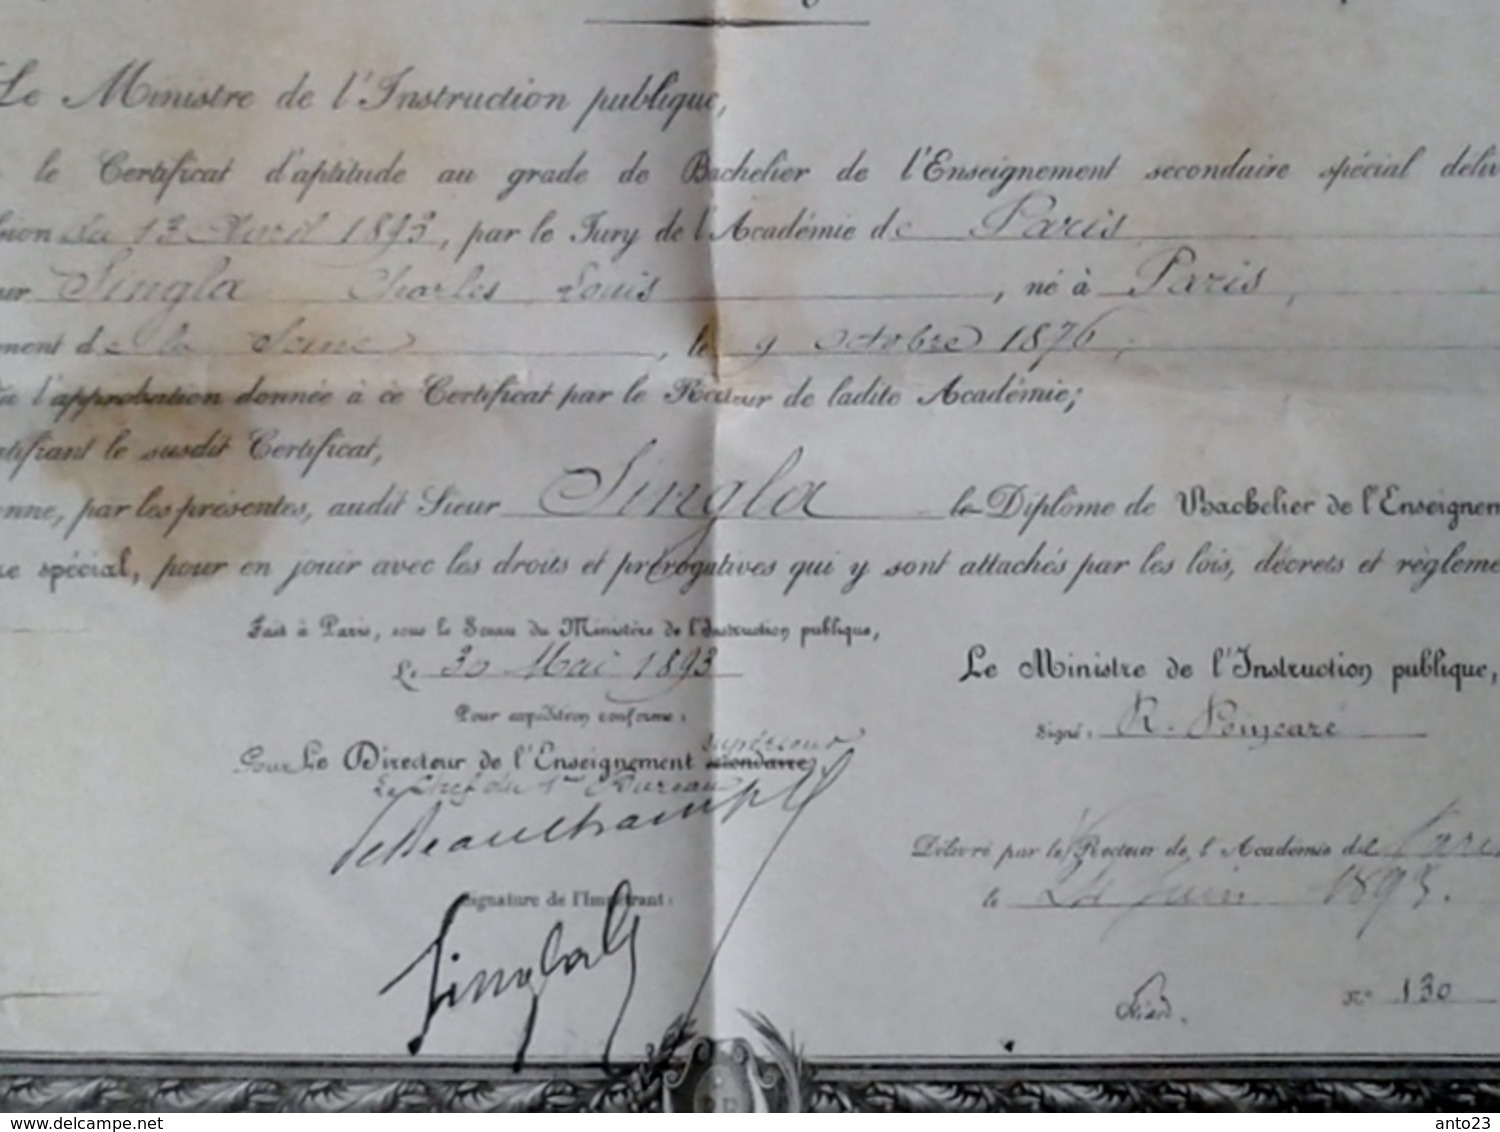 Le Ministre de l'Instruction publique,
le Certificat d'aptitude au grade de Bachelier de l'Enseignement secondaire spécial déliv
sion du 13 Avril 1893, par le Jury de l'Académie de Paris
ur Singla Charles Louis, né à Paris,
ment de la Seine, le 9 octobre 1876;
l'approbation donnée à ce Certificat par le Recteur de ladite Académie;
atifiant le susdit Certificat,
onne, par les présentes, audit Sieur Singla le Diplôme de Bachelier de l'Enseignem
re spécial, pour en jouir avec les droits et prérogatives qui y sont attachés par les lois, décrets et règleme
Fait à Paris, sous le Sceau du Ministère de l'Instruction publique,
Le 30 Mai 1893
Pour expédition conforme:
Pour Le Directeur de l'Enseignement secondaire, supérieur
Le Chef du 1er Bureau
de Beauchamp
Signature de l'Impétrant:
Singla
Le Ministre de l'Instruction publique,
Signé: R. Poincaré
Délivré par le Recteur de l'Académie de Paris
le 24 Juin 1893.
N° 130
delcampe.net
anto23